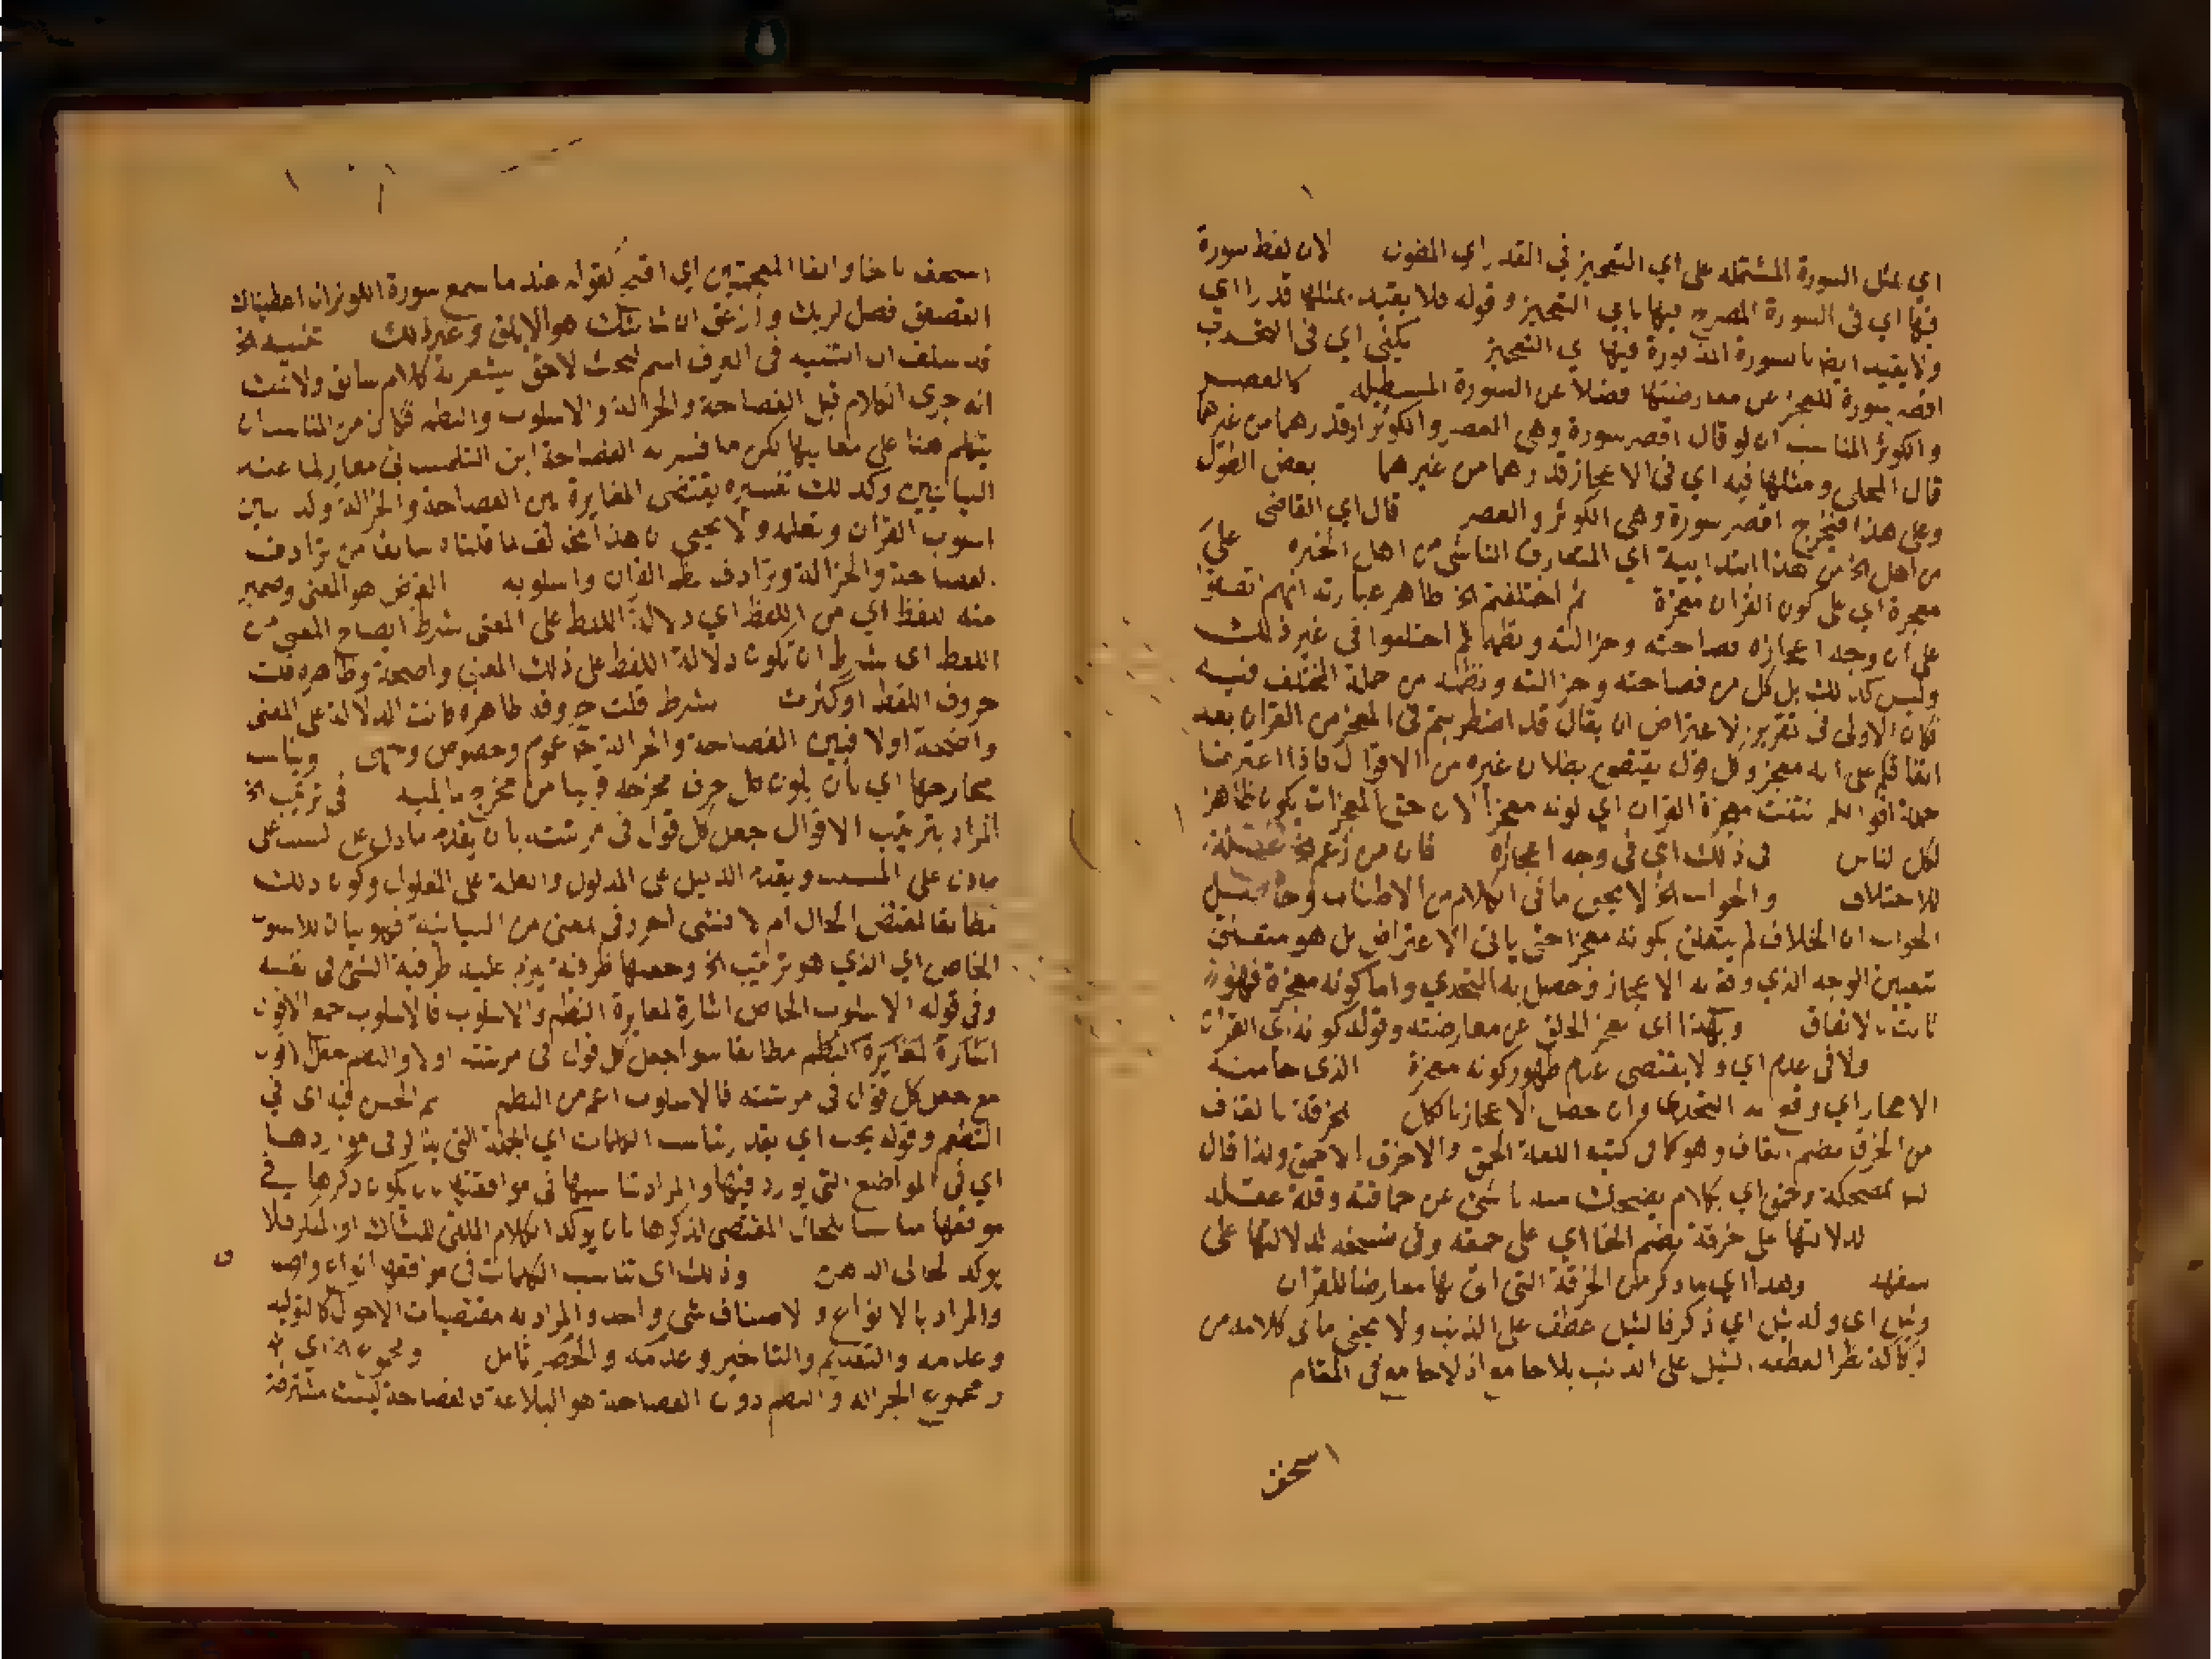 اي بمثل السورة المشتمله على اي التعجيز في القدر اي المفون لان لفظ سورة
فيها اي في السورة المصرح فيها باي التعجيز وقوله فلا يقيد بمثلها قدرا اي
ولا يقيد ايضا بالسورة المذكورة فيها اي التعجيز يكفي اي في التحدي
اقصر سورة للعجز عن معارضتها فضلا عن السورة المستطيله كالعصر
والكوثر المناسب ان لو قال اقصر سورة وهي العصر والكوثر او قدرهما من غيرهما
قال المحلى ومثلها فيه اي في الاعجاز قدرهما من غيرهما بعض الطول
وعلى هذا فيخرج اقصر سورة وهي الكوثر والعصر قال اي القاضي
من اهل الخ من هذا ابتدايية اي المتعارف الناشى من اهل الخبره على
معجزة اي على كون القران معجزة ثم اختلفتم الخ ظاهر عبارته انهم اتفقوا
على ان وجه اعجازه فصاحته وجزالته ونظمه ثم اختلفوا في غير ذلك
وليس كذلك بل كل من فصاحته وجزالته ونظمه من جملة المختلف فيه
فكان الاولى في تقرير الاعتراض ان يقال قد اضطربتم في المعجز من القران بعد
اتفاقكم على انه معجز وكل قول يقتضي بطلان غيره من الاقوال فاذا اعتبرنا
جملة اقوالكم نتفت معجزة القران اي كونه معجزا لان حق المعجزات يكون ظاهرا
لكل الناس في ذلك اي في وجه اعجازه فان من زعم الخ
للاختلاف والجواب الخ لا يخفى ما في الكلام من الاطناب وحاصل
الجواب ان الخلاف لم يتعلق بكونه معجزا حتى ياتى الاعتراض بل هو متعلق
بتعيين الوجه الذي وقع به الاعجاز وحصل به التحدي واما كونه معجزة فهو
ثابت بالاتفاق وبهذا اي بعجز الخلق عن معارضته وقوله كونه اي القران
ولا في عدم اي ولا يقتضى عدم ظهور كونه معجزة الذى جا منه
الاعجاز اي وقع به التحدى وان حصل الاعجاز بالكل بخرقة بالقاف
من الخرق بضم القاف وهو كما في كتب اللغة الحمق والاخرق الاحمق ولذا قال
مضحكة وحمق اي بكلام يضحك منه ناشئ عن حماقته وقلة عقله
لدلالتها على خرقة بضم الخا اي على حمقه وفي نسخه لدلالتها على
سفهه وهذا اي ما ذكر من الخرقة التي اتى بها معارضا للقران
وثيل اي وله ثيل اي ذكر فالثيل عطف على الذنب ولا يخفى ما في كلامه من
الركاكة نظرا لعطفه الثيل على الذنب بلا جامع اذ لا جامع في المقام
اسخف
اسخف بالخا والفا المعجمتين اي اقبح كقوله عند ما سمع سورة الكوثر انا اعطيناك
العقعق فصل لربك وازعق ان شانئك هو الابلق وغير ذلك تنبيه الخ
قد سلف ان التنبيه في العرف اسم لبحث لاحق يشعر به كلام سابق ولا شك
انه جرى الكلام قبل الفصاحة والجزالة والاسلوب والنظم فكان من المناسب ان
يتكلم هنا على معانيها لكن ما فسر به الفصاحة ابن التلمساني مغاير لما عند
البيانيين وكذلك تفسيره يقتضى المغايرة بين الفصاحة والجزالة وكذا بين
اسلوب القران ونظمه ولا يخفى ان هذا مخالف لما قلناه سابقا من ترادف
الفصاحة والجزالة وترادف نظم القران واسلوبه الغرض هو المعنى وضمير
منه للفظ اي من اللفظ اي دلالة اللفظ على المعنى بشرط ايضاح المعنى من
اللفظ اي بشرط ان تكون دلالة اللفظ على ذلك المعنى واضحة وظاهره قلت
حروف اللفظ او كثرت بشرط قلت حروفه ظاهره كانت الدلالة على المعنى
واضحة اولا فبين الفصاحة والجزالة عموم وخصوص وجهى وتناسب
مخارجها اي بان يكون كل حرف مخرجه قريبا من مخرج ما يليه في ترتيب الخ
المراد بترتيب الاقوال جعل كل قول في مرتبته بان يقدم ما دل على السبب على
ما دل على المسبب ويقدم الدليل على المدلول والعلة على المعلول وكون ذلك
مطابقا لمقتضى الحال ام لا فشى اخر وفي بمعنى من البيانية فهو بيان للاسلوب
الخاص اي الذي هو ترتيب الخ وجعلها ظرفية يلزم عليه ظرفية الشى في نفسه
وفي قوله الاسلوب الخاص اشارة لمغايرة النظم والاسلوب فالاسلوب جمع الاقوال
مع جعل كل قول في مرتبته فالاسلوب اعم من النظم ثم الحسن فيه اى في
النظم وقوله بحسب اي بقدر تناسب الكلمات اي الجملة التي يتالف في مواردها
اي في المواضع التي يورد فيها والمراد تناسبها في موافقتها بان يكون ذكرها في
موقعها مناسبا للحال المقتضى لذكرها بان يوكد الكلام الملقى للشاك او المنكر فلا
يوكد لخالى الذهن وذلك اى تناسب الكلمات في مواقعها انواع واصناف
والمراد بالانواع والاصناف شى واحد والمراد به مقتضيات الاحوال كالتوكيد
وعدمه والتقديم والتاخير وعدمه والحصر تامل ومجموع الخ اي
ومجموع الجزالة والنظم دون الفصاحة هو البلاغة فالفصاحة ليست مشترطة